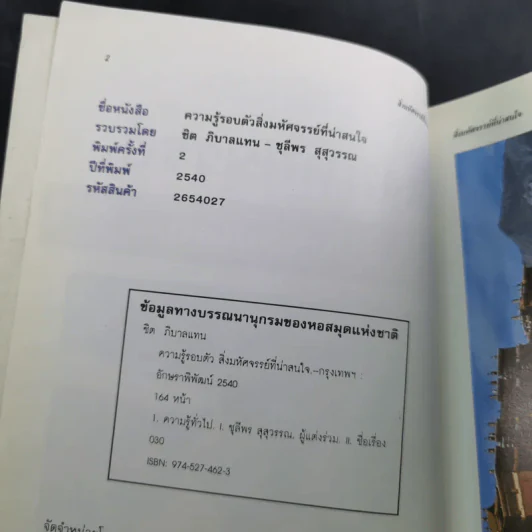 2
ชื่อหนังสือ ความรู้รอบตัวสิ่งมหัศจรรย์ที่น่าสนใจ
รวบรวมโดย ชิต ภิบาลแทน - ชุลีพร สุสุวรรณ
พิมพ์ครั้งที่ 2
ปีที่พิมพ์ 2540
รหัสสินค้า 2654027
ข้อมูลทางบรรณานุกรมของหอสมุดแห่งชาติ
ชิต ภิบาลแทน
ความรู้รอบตัว สิ่งมหัศจรรย์ที่น่าสนใจ.--กรุงเทพฯ :
อักษราพิพัฒน์ 2540
164 หน้า
1. ความรู้ทั่วไป. I. ชุลีพร สุสุวรรณ, ผู้แต่งร่วม. II. ชื่อเรื่อง
030
ISBN: 974-527-462-3
สิ่งมหัศจรรย์ที่น่าสนใจ